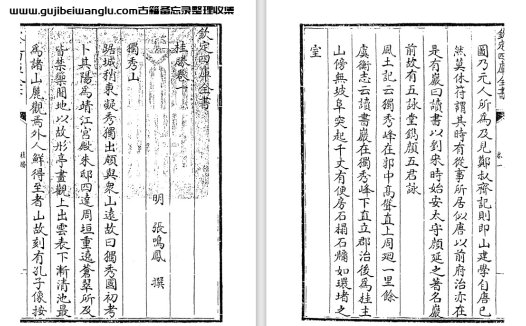 www.gujibeiwanglu.com古籍备忘录整理收集
欽定四庫全書
桂勝卷一
明 張鳴鳳 撰
獨秀山
踞城稍東凝秀獨出頗與衆山遠故曰獨秀國初考
卜其陽為靖江宮殿朱邸四達周垣重遶蒼翠所及
皆禁籞間地以故彤亭畫觀上出雲表下漸清池最
為諸山麗觀焉外人鮮得至者山故刻有孔子像按
欽定四庫全書
圖乃元人所為及見鄭叔齊記則即山建學自唐已
然莫休符謂其時有從事所居似唐以前府治亦在
是有巖曰讀書以劉宋時始安太守顔延之著名巖
前故有五詠堂鐫顔五君詠
風土記云獨秀峰在郭中高聳直上周廻一里餘
虞衡志云讀書巖在獨秀峰下直立郡治後為桂主
山傍無坡阜突起千丈有便房石榻石牖如環堵之
室